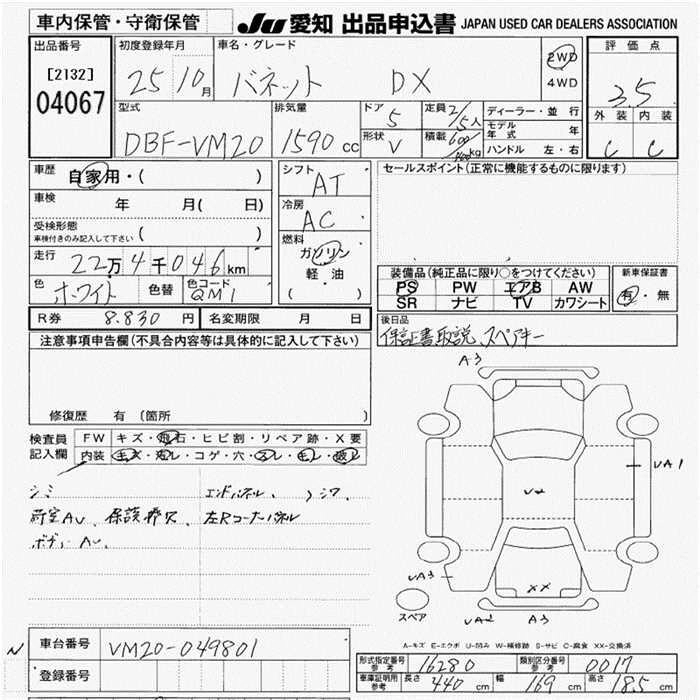 車内保管・守衛保管
JU 愛知 出品申込書 JAPAN USED CAR DEALERS ASSOCIATION
出品番号
[2132]
04067
初度登録年月
25 10月
車名・グレード
バネット DX
2WD
4WD
評価点
3.5
外装 内装
C C
型式
DBF-VM20
排気量
1590 cc
ドア
5
形状
V
定員 2/5人
積載 600/400kg
ディーラー・並行
モデル年式 年
ハンドル 左・右
車歴
自家用・( )
車検
年 月( 日)
受検形態
車検付きのみ記入して下さい ( )
走行
22万4千046km
色
ホワイト
色替
色コード
QM1
シフト
AT
冷房
AC
燃料
ガソリン
軽・油
( )
セールスポイント(正常に機能するものに限ります)
装備品(純正品に限り○をつけてください)
PS PW エアB AW
SR ナビ TV カワシート
新車保証書
有・無
R券 8.830 円 名変期限 月 日
後日品
保証書取説、スペアキー
注意事項申告欄(不具合内容等は具体的に記入して下さい)
修復歴 有 (箇所
検査員
記入欄
FW キズ・飛石・ヒビ割・リペア跡・X要
内装 キズ・汚レ・コゲ・穴・スレ・モレ・破レ
シミ エンドパネル、 シワ、
荷室AU、 左Rコーナーパネル
ボディ AU
A3
UA1
U2
UA3
XX
UA2 A3
スペア
A-キズ E-エクボ U-凹み W-補修跡 S-サビ C-腐食 XX-交換済
N
車台番号 VM20-049801
登録番号
形式指定番号 参考 16280 類別区分番号 参考 0017
車庫証明用 参考 長さ 440 cm 幅 169 cm 高さ 185 cm